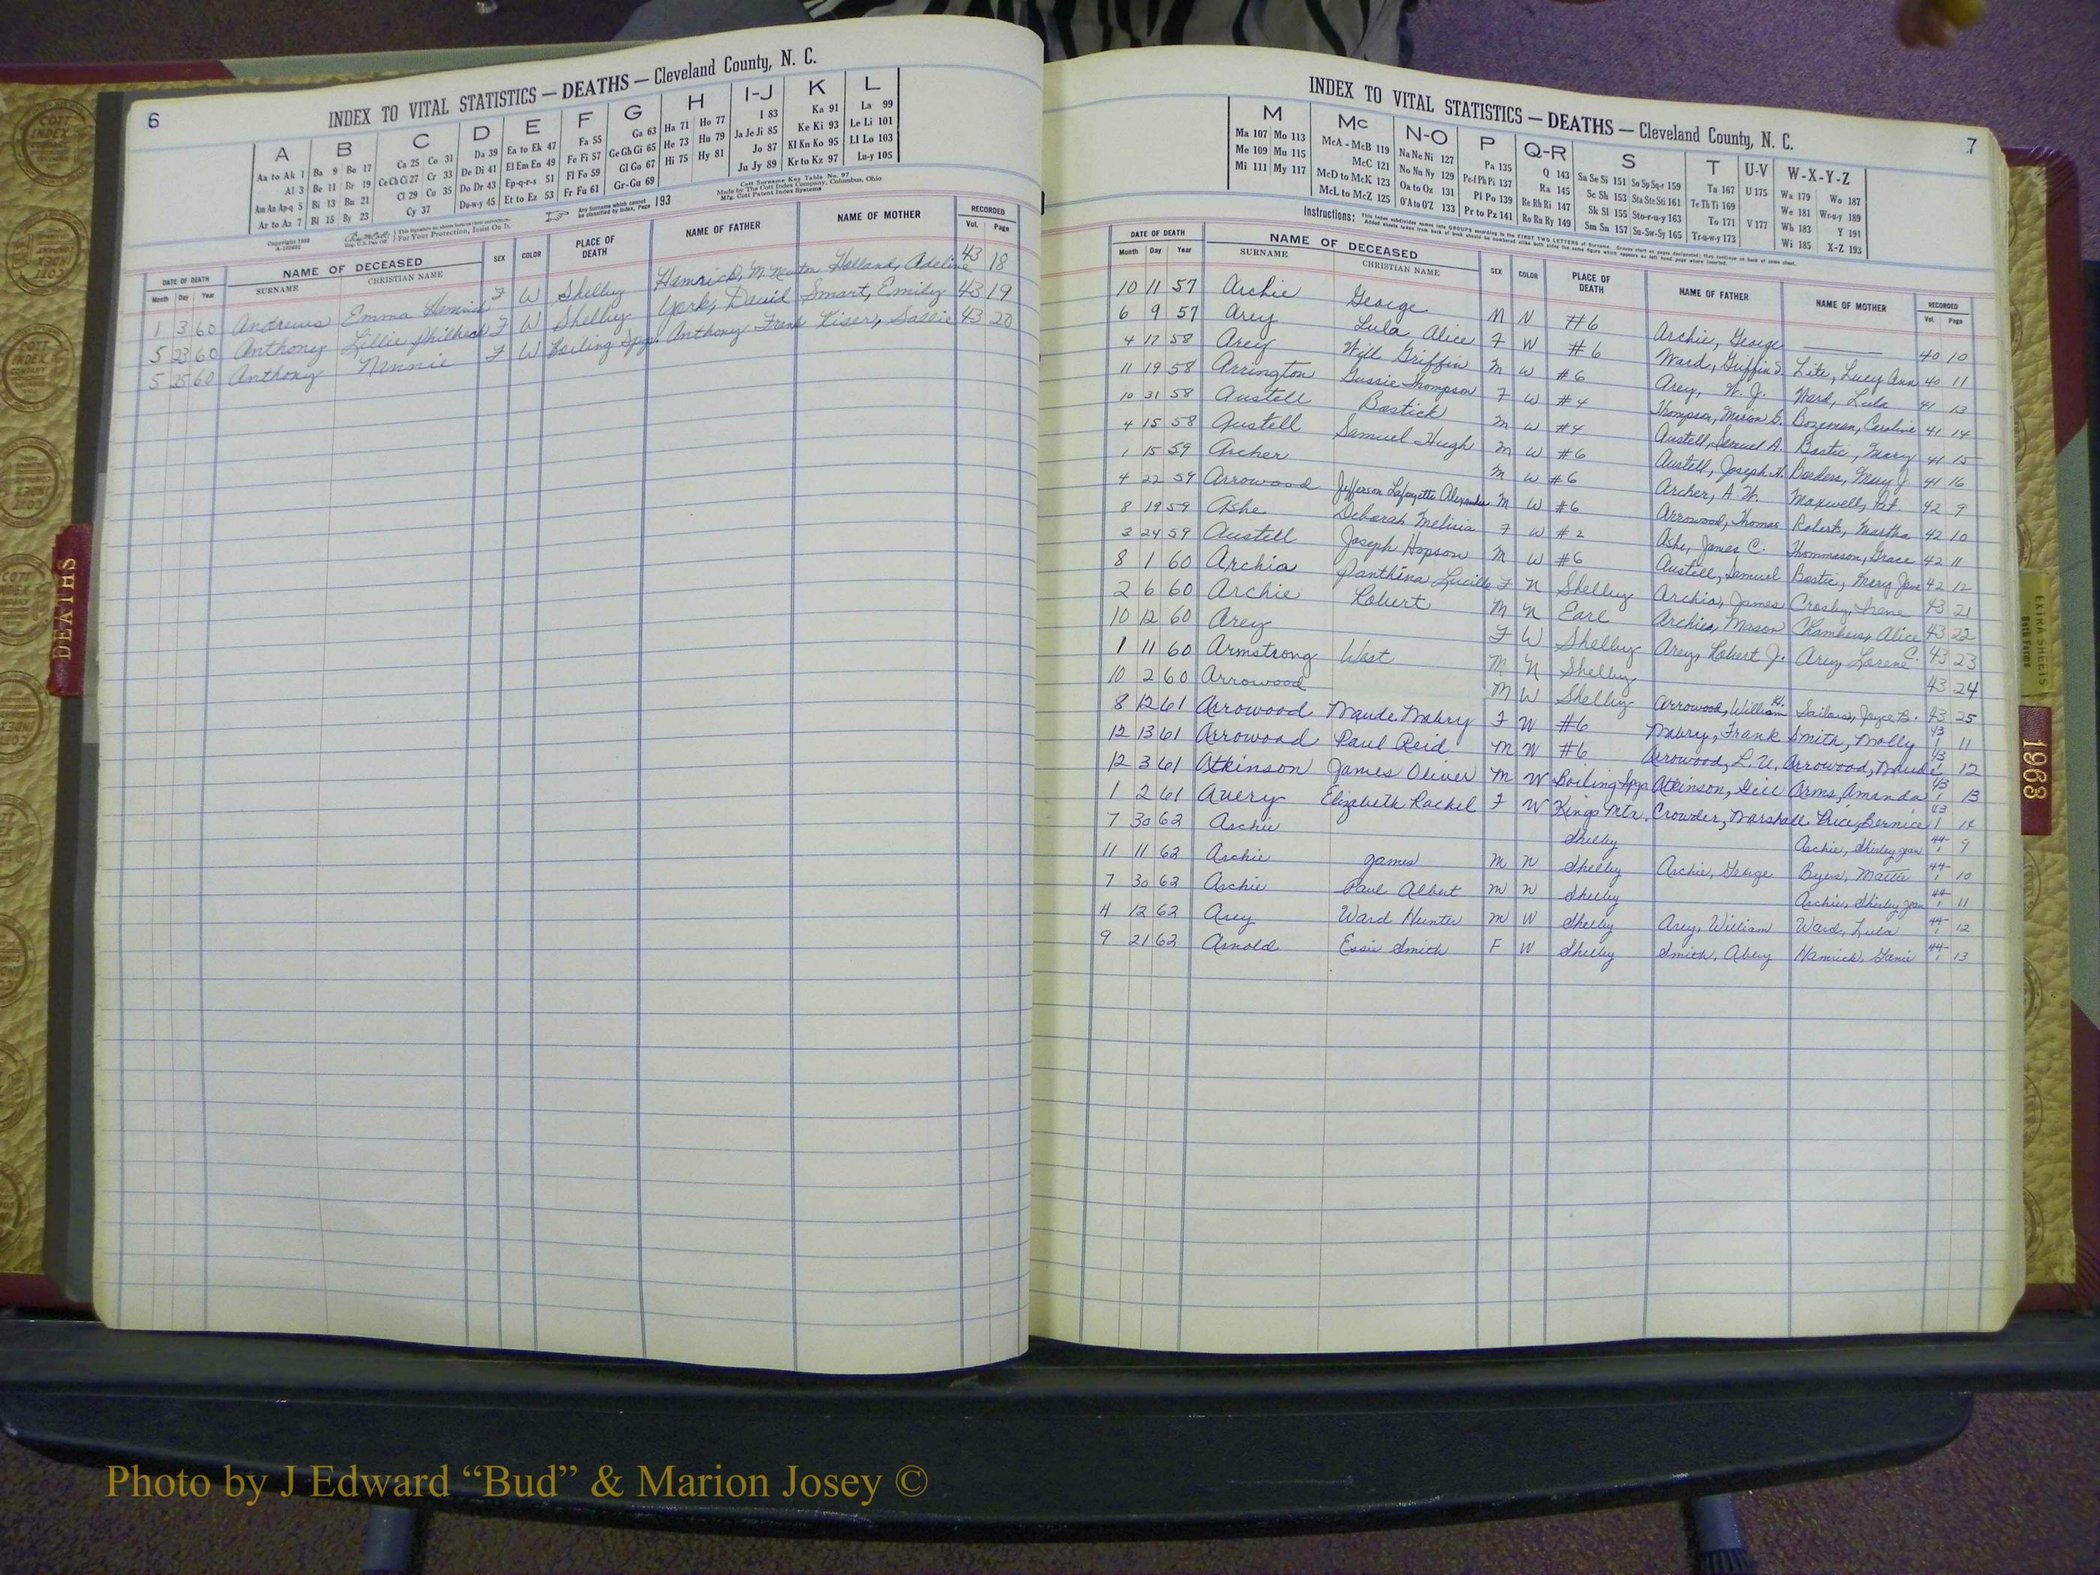 6
INDEX TO VITAL STATISTICS — DEATHS — Cleveland County, N. C.
A B C D E F G H I-J K L
Aa to Ak 1 Ba 9 Bo 17 Ca 25 Co 31 Da 39 Ea to Ek 47 Fa 55 Ga 63 Ha 71 Ho 77 I 83 Ka 91 La 99
Al 3 Be 11 Br 19 Ce Ch Ci 27 Cr 33 De Di 41 El Em En 49 Fe Fi 57 Ge Gh Gi 65 He 73 Hu 79 Ja Je Ji 85 Ke Ki 93 Le Li 101
Am An Ap-q 5 Bi 13 Bu 21 Cl 29 Cu 35 Do Dr 43 Ep-q-r-s 51 Fl Fo 59 Gl Go 67 Hi 75 Hy 81 Jo 87 Kl Kn Ko 95 Ll Lo 103
Ar to Az 7 Bl 15 By 23 Cy 37 Du-w-y 45 Et to Ez 53 Fr Fu 61 Gr-Gu 69 Ju Jy 89 Kr to Kz 97 Lu-y 105
Cott Surname Key Table No. 97
Made by The Cott Index Company, Columbus, Ohio
Mfg. Cott Patent Index Systems
Any Surname which cannot be classified by index, Page 193
For Your Protection, Insist On It.
DATE OF DEATH NAME OF DECEASED SEX COLOR PLACE OF DEATH NAME OF FATHER NAME OF MOTHER RECORDED
Month Day Year SURNAME CHRISTIAN NAME Vol. Page
1 3 60 Andrews Emma Hamrick F W Shelby Hamrick, M. Newton Holland, Adeline 43 18
5 23 60 Anthony Lillie Philbeck F W Shelby York, David Smart, Emily 43 19
5 25 60 Anthony Nannie F W Boiling Spgs. Anthony Frank Kiser, Sallie 43 20
DEATHS
7
INDEX TO VITAL STATISTICS — DEATHS — Cleveland County, N. C.
M Mc N-O P Q-R S T U-V W-X-Y-Z
Ma 107 Mo 113 McA - McB 119 Na Ne Ni 127 Pa 135 Q 143 Sa Se Si 151 So Sp Sq-r 159 Ta 167 U 175 Wa 179 Wo 187
Me 109 Mu 115 McC 121 No Nu Ny 129 Pe-f Ph Pi 137 Ra 145 Sc Sh 153 Sta Ste Sti 161 Te Th Ti 169 We 181 Wr-u-y 189
Mi 111 My 117 McD to McK 123 Oa to Oz 131 Pl Po 139 Re Rh Ri 147 Sk Sl 155 Sto-r-u-y 163 To 171 V 177 Wh 183 Y 191
McL to McZ 125 O'A to O'Z 133 Pr to Pz 141 Ro Ru Ry 149 Sm Sn 157 Su-Sw-Sy 165 Tr-u-w-y 173 Wi 185 X-Z 193
Instructions:
DATE OF DEATH NAME OF DECEASED SEX COLOR PLACE OF DEATH NAME OF FATHER NAME OF MOTHER RECORDED
Month Day Year SURNAME CHRISTIAN NAME Vol. Page
10 11 57 Archie George M N #6 Archie, George 40 10
6 9 57 Arey Lula Alice F W #6 Ward, Griffin S. Lite, Lucy Ann 40 11
4 17 58 Arey Will Griffin M W #6 Arey, W. J. Ward, Lula 41 13
11 19 58 Arrington Gussie Thompson F W #4 Thompson, Marion G. Bozeman, Caroline 41 14
10 31 58 Austell Bostick M W #4 Austell, Samuel A. Bostic, Mary 41 15
4 15 58 Austell Samuel Hugh M W #6 Austell, Joseph H. Borders, Mary J. 41 16
1 15 59 Archer M W #6 Archer, A. W. Maxwell, Pat. 42 9
4 22 59 Arrowood Jefferson Lafayette Alexander M W #6 Arrowood, Thomas Roberts, Martha 42 10
8 19 59 Ashe Deborah Melisia F W #2 Ashe, James C. Thommason, Grace 42 11
3 24 59 Austell Joseph Hopson M W #6 Austell, Samuel Bostic, Mary Jane 42 12
8 1 60 Archia Panthina Lucille F N Shelby Archia, James Crosby, Irene 43 21
2 6 60 Archie Robert M N Earl Archie, Mason Chambers, Alice 43 22
10 12 60 Arey F W Shelby Arey, Robert J. Arey, Lorene C. 43 23
1 11 60 Armstrong West M N Shelby 43 24
10 2 60 Arrowood M W Shelby Arrowood, William H. Sailors, Joyce B. 43 25
8 12 61 Arrowood Maude Mabry F W #6 Mabry, Frank Smith, Molly 43 1 11
12 13 61 Arrowood Paul Reid M W #6 Arrowood, L. U. Arrowood, Maude 43 1 12
12 3 61 Atkinson James Oliver M W Boiling Spgs Atkinson, Dice Arms, Amanda 43 1 13
1 2 61 Avery Elizabeth Rachel F W Kings Mtn. Crowder, Marshall Price, Bernice 43 1 14
7 30 62 Archie Shelby Archie, Shirley Jean 44 1 9
11 11 62 Archie James M N Shelby Archie, George Byers, Mattie 44 1 10
7 30 62 Archie Paul Albert M N Shelby Archie, Shirley Jean 44 1 11
4 12 62 Arey Ward Hunter M W Shelby Arey, William Ward, Lula 44 1 12
9 21 62 Arnold Essie Smith F W Shelby Smith, Abery Hamrick, Janie 44 1 13
EXTRA SHEETS
1963
Photo by J Edward “Bud” & Marion Josey ©